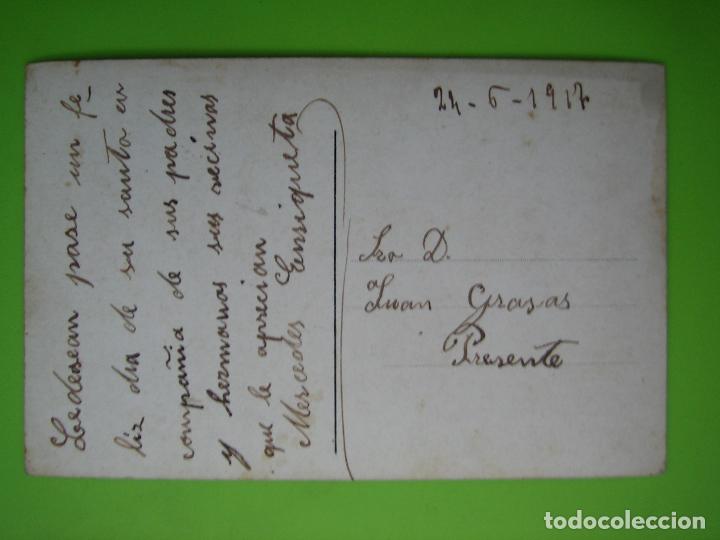 Ledesean pase un fe-
liz dia de su santo en
compañia de sus padres
y hermanos sus vecinas
que le aprecian
Mercedes Enriqueta
24-6-1917
Sro D.
Juan Grasas
Presente
todocoleccion.net